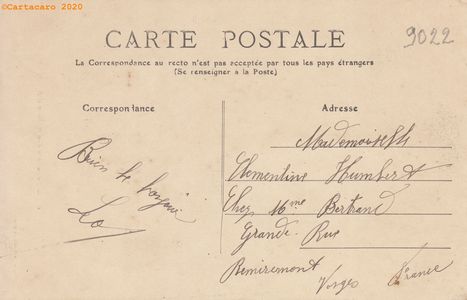 ©Cartacaro 2020
9022
CARTE POSTALE
La Correspondance au recto n'est pas acceptée par tous les pays étrangers
(Se renseigner à la Poste)
Correspondance
Adresse
Bien le bonjour
Léo
Mademoiselle
Clementine Humbert
Chez Mme Bertrand
Grande-Rue
Remiremont
Vosges France